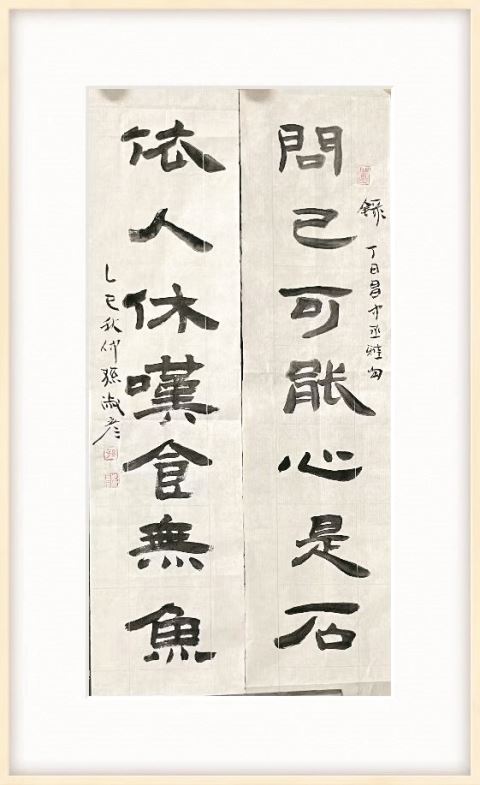 問己可能心是石
錄 丁日昌中丞雅句
依人休嘆食無魚
乙巳秋仲孫淑彦